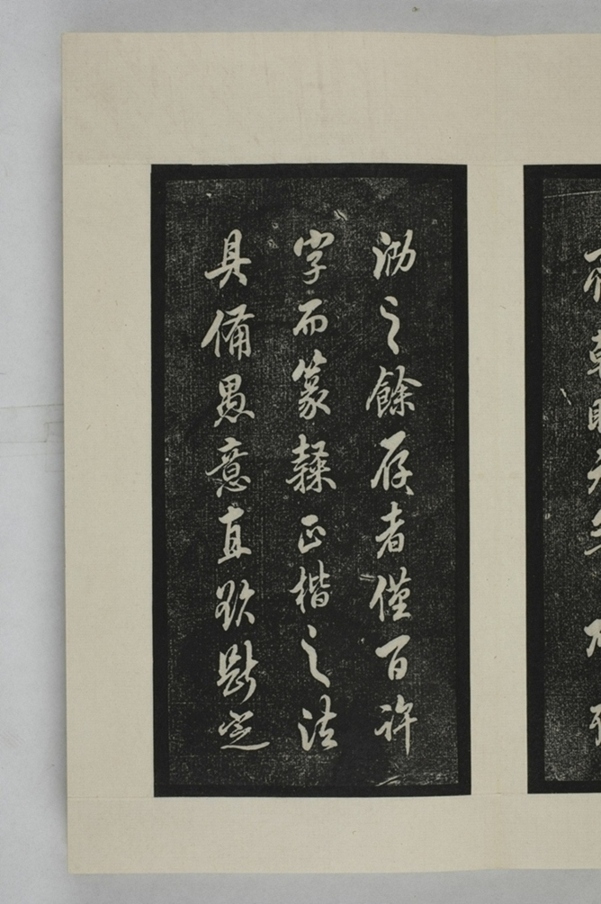 泐之餘存者僅百許
字而篆隸正楷之法
具備愚意直欲斷定